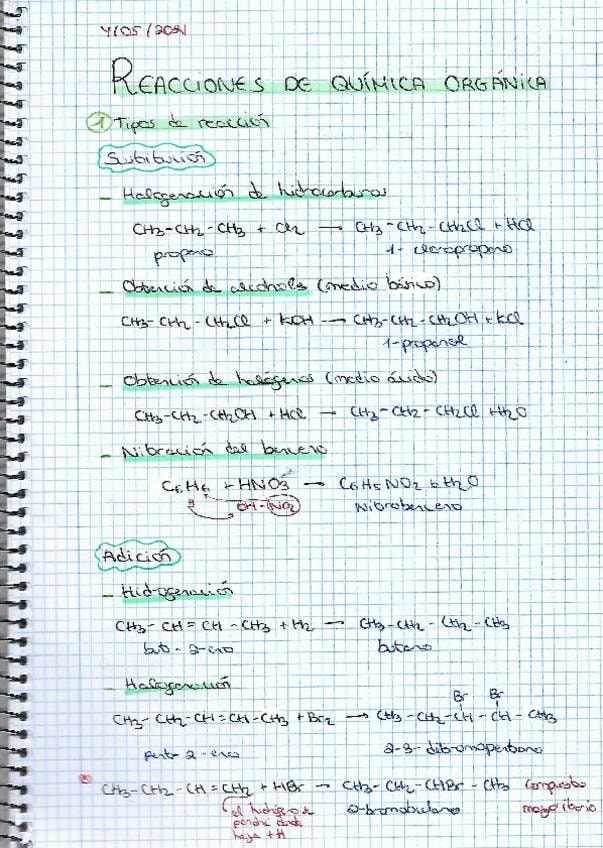 4/05/2021
REACCIONES DE QUÍMICA ORGÁNICA
1 Tipos de reacción
Sustitución
- Halogenación de hidrocarburos
CH3-CH2-CH3 + Cl2 → CH3-CH2-CH2Cl + HCl
propano 1-cloropropano
- Obtención de alcoholes (medio básico)
CH3-CH2-CH2Cl + KOH → CH3-CH2-CH2OH + KCl
1-propanol
- Obtención de halógenos (medio ácido)
CH3-CH2-CH2OH + HCl → CH3-CH2-CH2Cl + H2O
- Nitración del benceno
C6H6 + HNO3 → C6H5NO2 + H2O
OH-NO2 Nitrobenceno
Adición
- Hidrogenación
CH3-CH=CH-CH3 + H2 → CH3-CH2-CH2-CH3
but-2-eno butano
- Halogenación
Br Br
CH3-CH2-CH=CH-CH3 + Br2 → CH3-CH2-CH-CH-CH3
pent-2-eno 2-3-dibromopentano
* CH3-CH2-CH=CH2 + HBr → CH3-CH2-CHBr-CH3 compuesto
el hidrógeno 2-bromobutano mayoritario
donde
haya +H